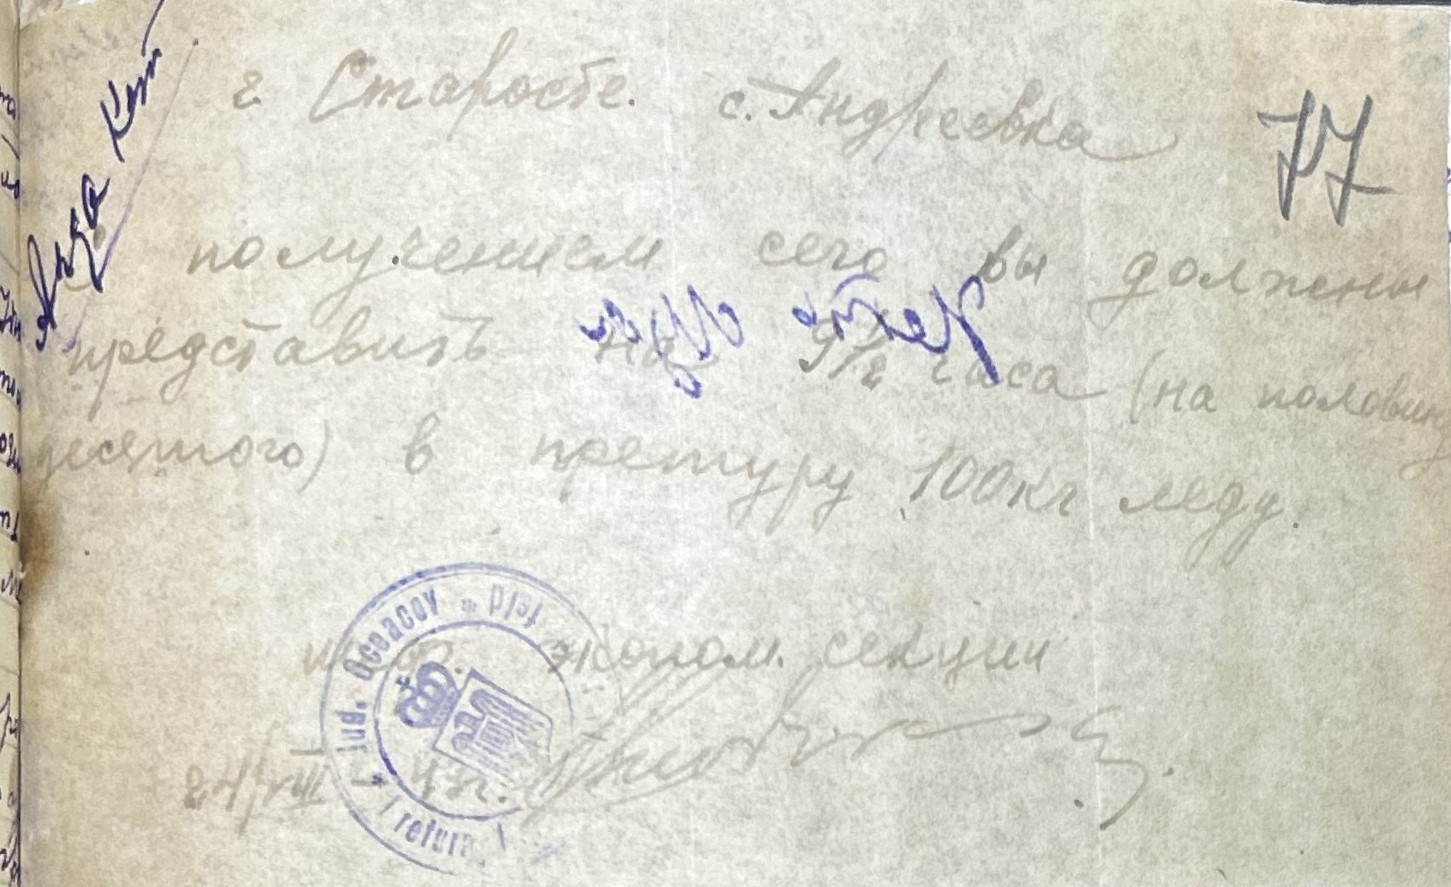 г. Старосте. с. Андреевка
77
С получением сего вы должны
представить на 9 1/2 часа (на половину
десятого) в претуру 100 кг меду.
эконом. секции
24/VIII
Jud. Oceacov